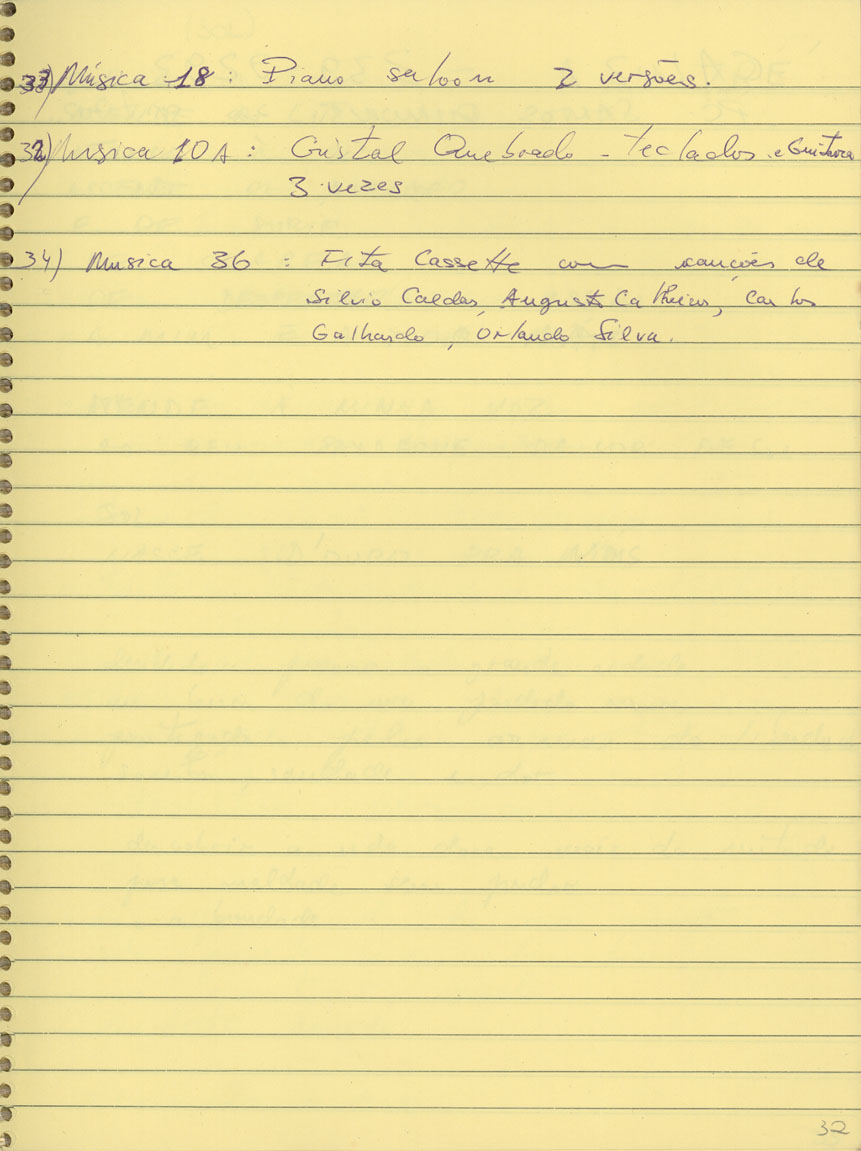 33) Música 18: Piano saloon 2 versões.
32) Musica 10A: Cristal Quebrado - teclados e Guitarra
3 vezes
34) Musica 36: Fita Cassette com canções de
Silvio Caldas, Augusto Calheiros, Carlos
Galhardo, Orlando Silva.
32